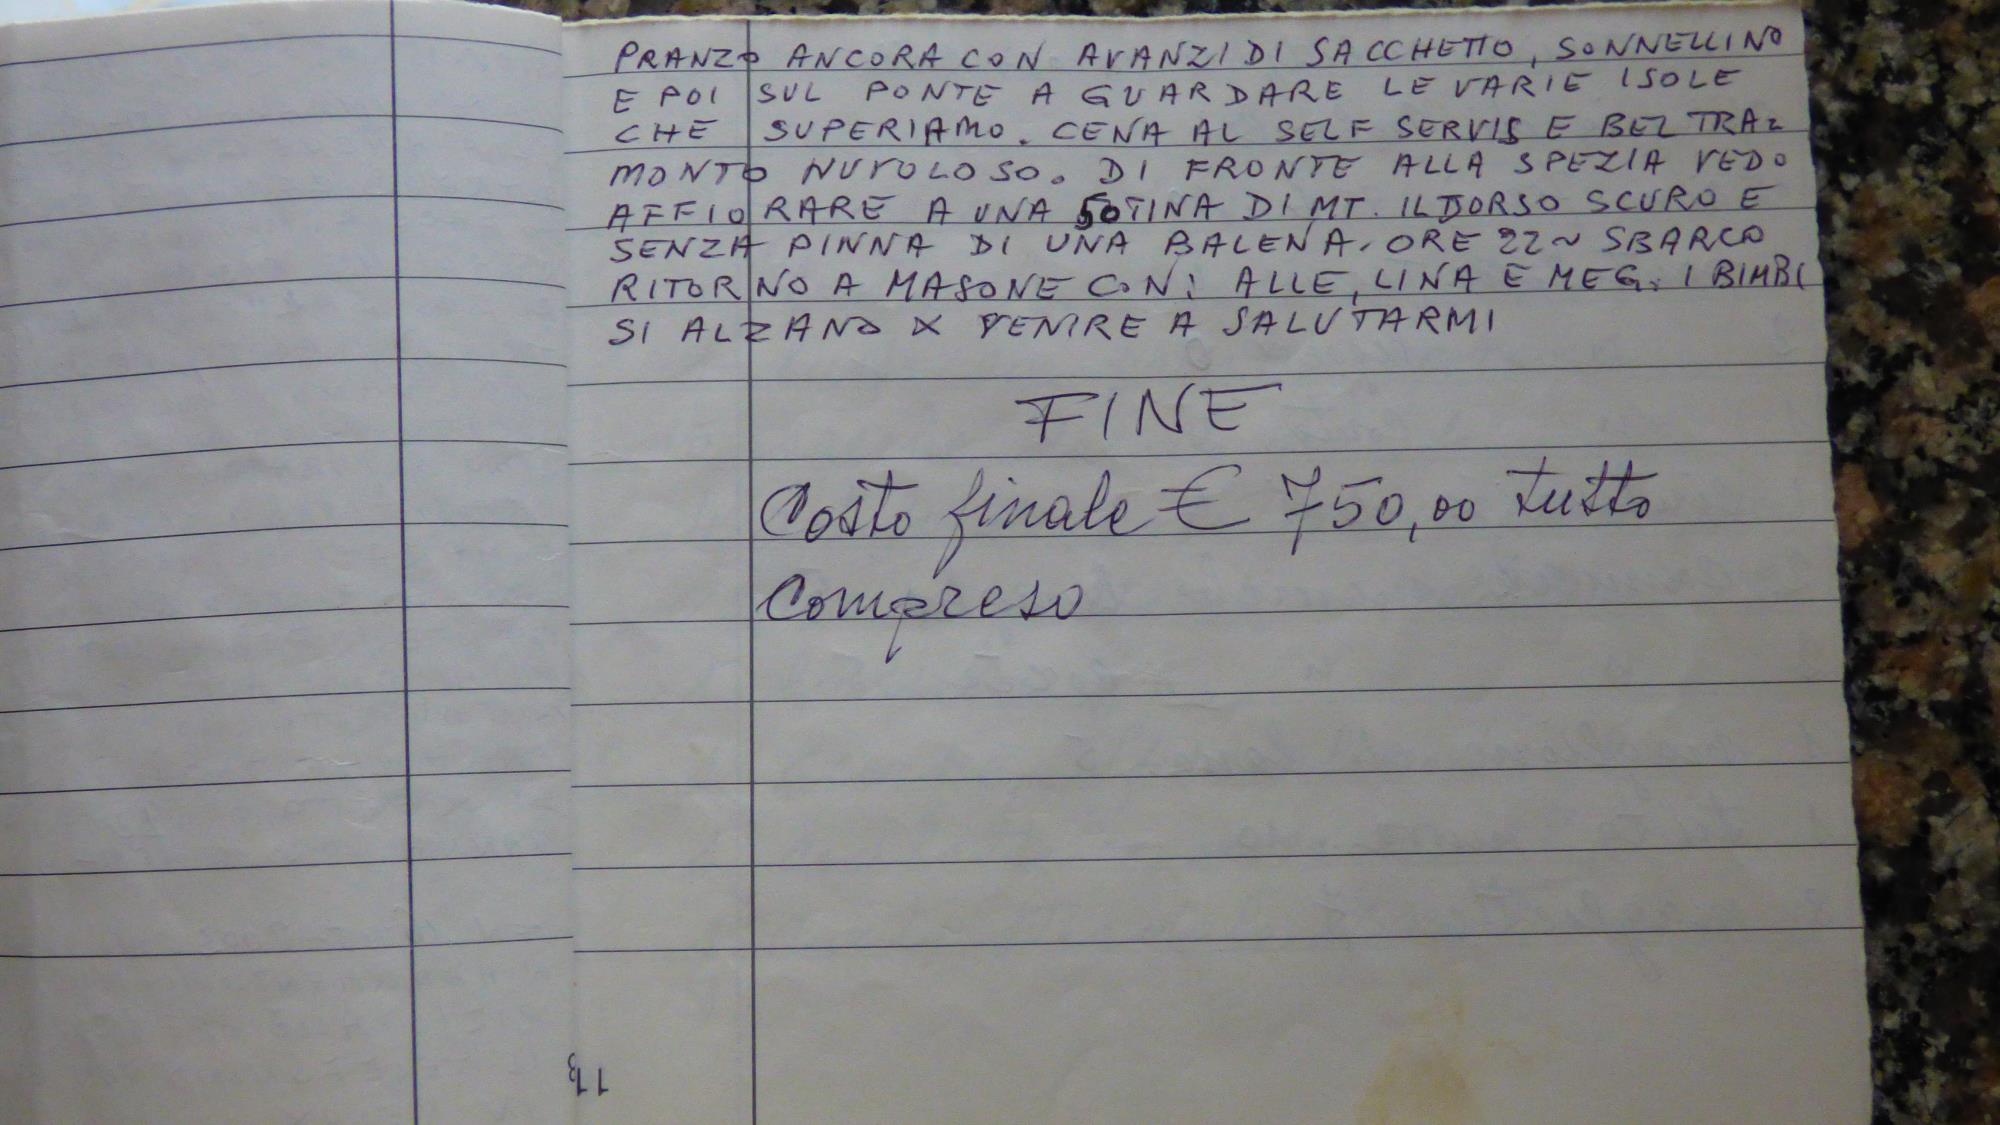 PRANZO ANCORA CON AVANZI DI SACCHETTO, SONNELLINO
E POI SUL PONTE A GUARDARE LE VARIE ISOLE
CHE SUPERIAMO. CENA AL SELF SERVIS E BEL TRA=
MONTO NUVOLOSO. DI FRONTE ALLA SPEZIA VEDO
AFFIORARE A UNA 50TINA DI MT. IL DORSO SCURO E
SENZA PINNA DI UNA BALENA. ORE 22~ SBARCO
RITORNO A MASONE CON: ALLE, LINA E MEG. I BIMBI
SI ALZANO X VENIRE A SALUTARMI
FINE
Costo finale € 750,00 tutto
compreso